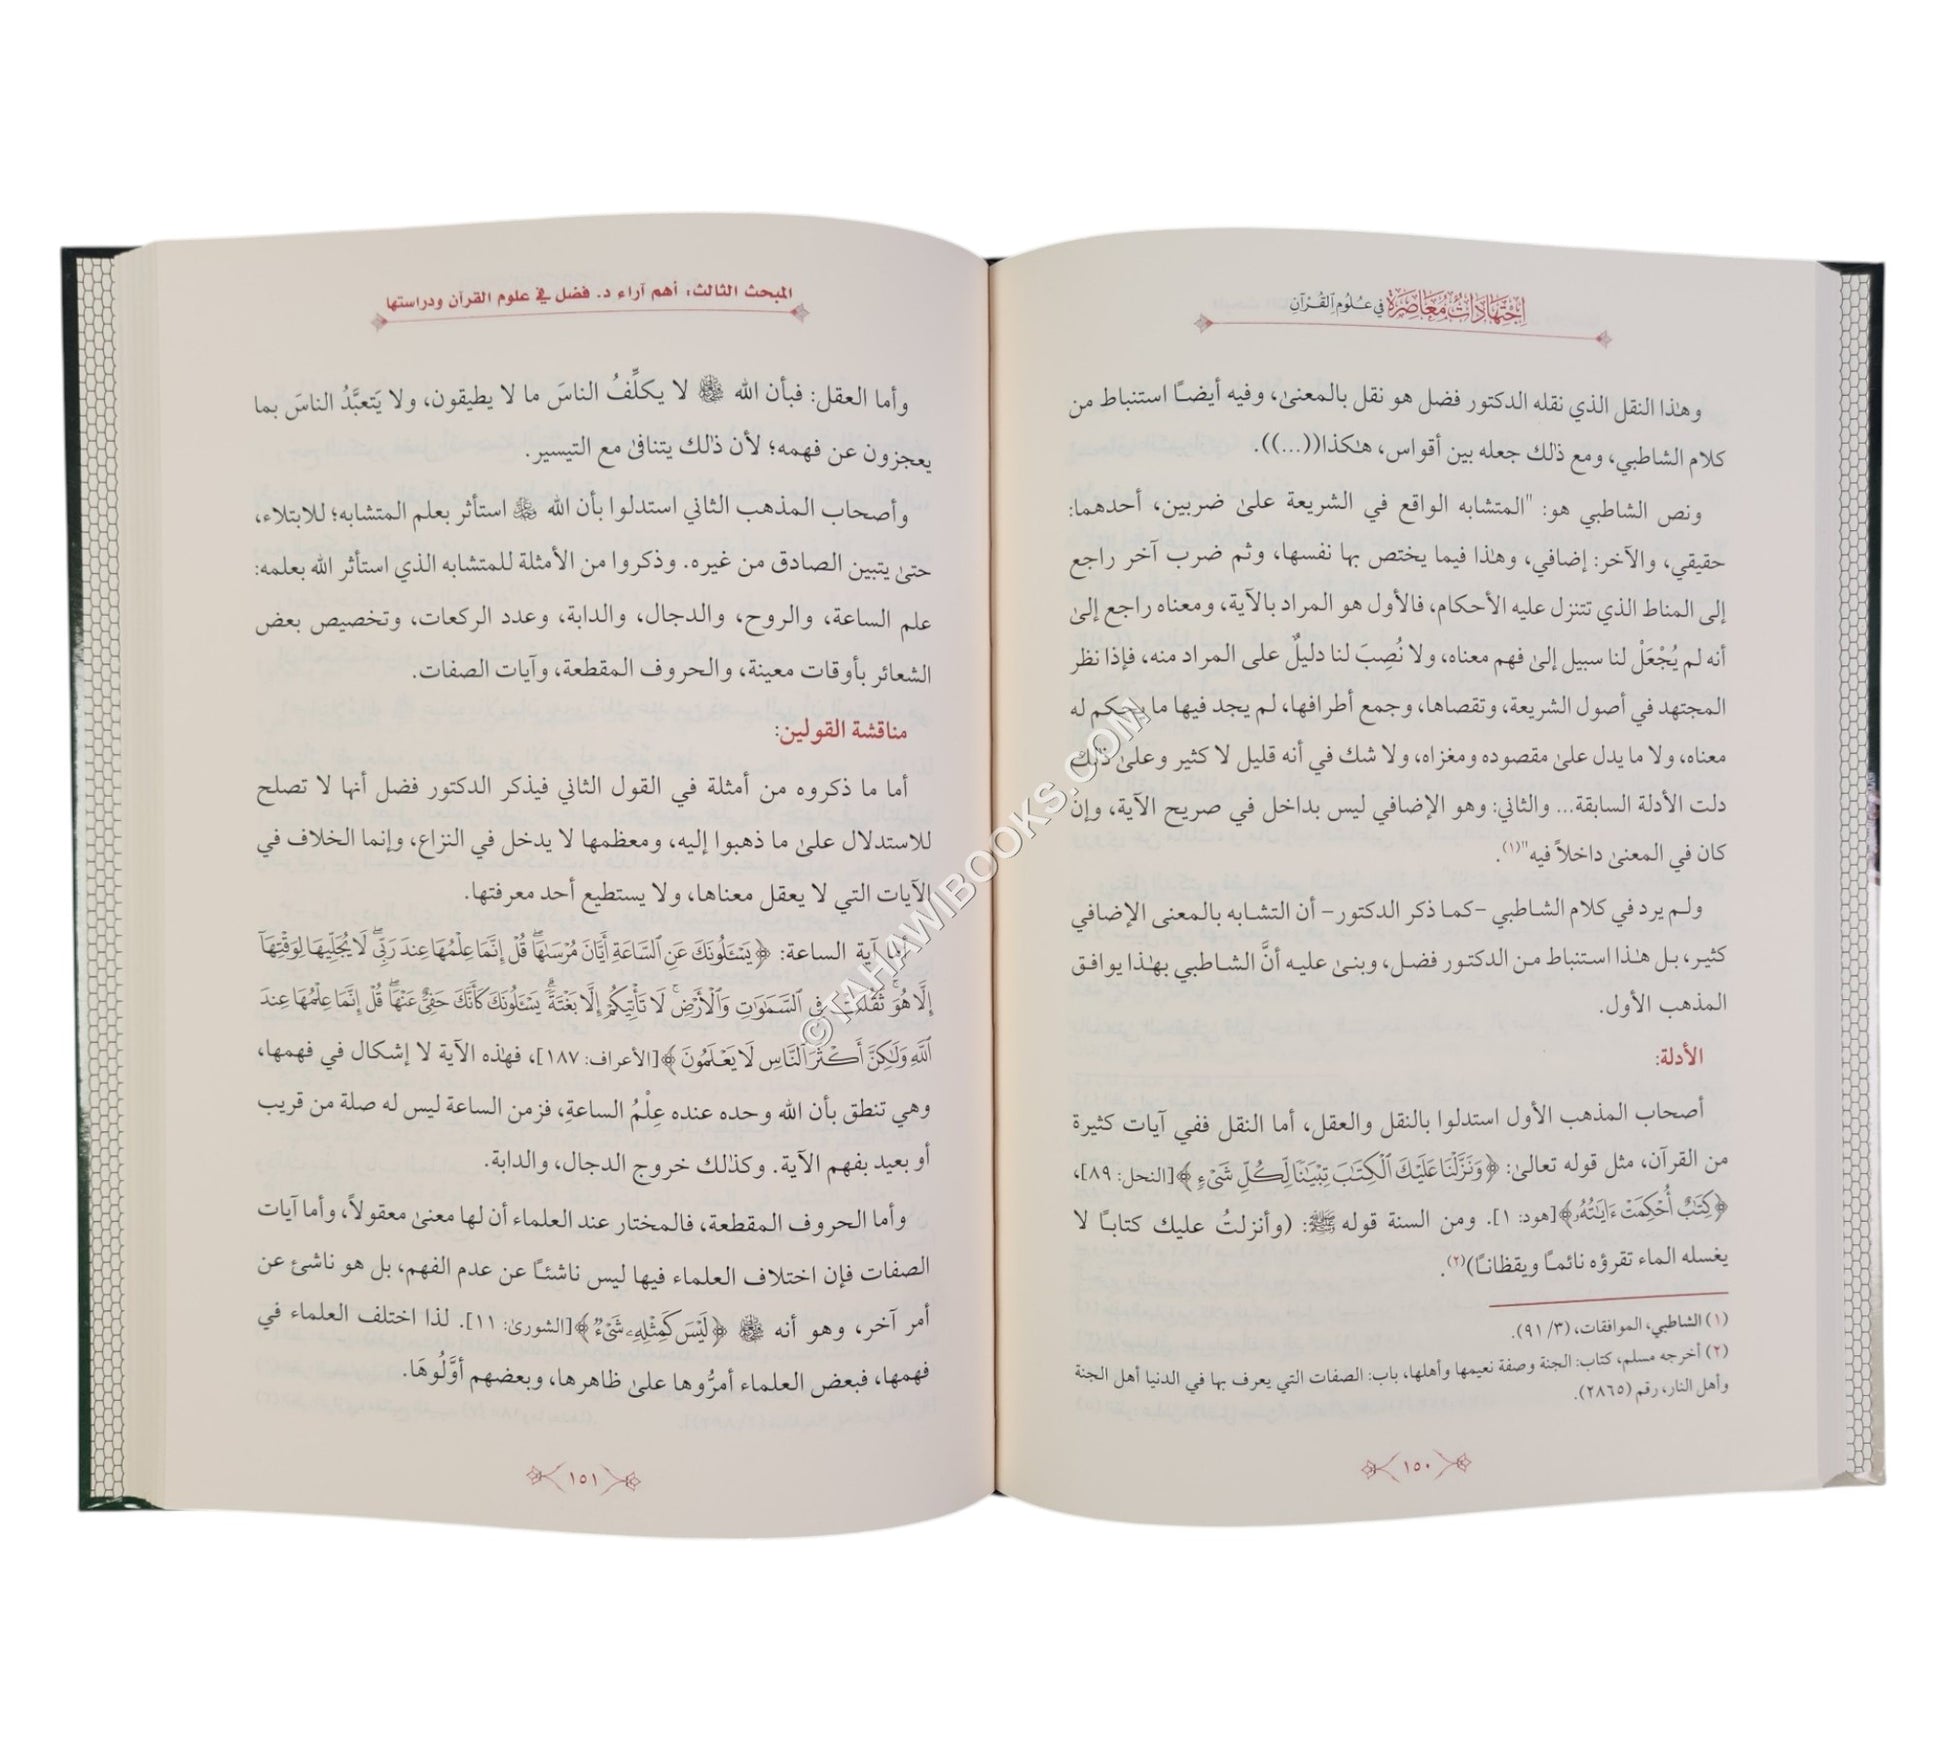 اجتهادات معاصرة في علوم القرآن
وهٰذا النقل الذي نقله الدكتور فضل هو نقل بالمعنىٰ، وفيه أيضاً استنباط من
كلام الشاطبي، ومع ذٰلك جعله بين أقواس، هٰكذا((...)).
ونص الشاطبي هو: "المتشابه الواقع في الشريعة علىٰ ضربين، أحدهما:
حقيقي، والآخر: إضافي، وهٰذا فيما يختص بها نفسها، وثم ضرب آخر راجع
إلى المناط الذي تتنزل عليه الأحكام، فالأول هو المراد بالآية، ومعناه راجع إلىٰ
أنه لم يُجْعَلْ لنا سبيل إلىٰ فهم معناه، ولا نُصِبَ لنا دليلٌ على المراد منه، فإذا نظر
المجتهد في أصول الشريعة، وتقصاها، وجمع أطرافها، لم يجد فيها ما يحكم له
معناه، ولا ما يدل علىٰ مقصوده ومغزاه، ولا شك في أنه قليل لا كثير وعلىٰ ذٰلك
دلت الأدلة السابقة... والثاني: وهو الإضافي ليس بداخل في صريح الآية، وإن
كان في المعنىٰ داخلاً فيه"(١).
ولـم يرد في كلام الشـاطبي -كمـا ذكر الدكتور- أن التشـابه بالمعنى الإضافي
كثيـر، بـل هـٰذا اسـتنباط مـن الدكتـور فضـل، وبنـىٰ عليـه أنَّ الشـاطبي بهـٰذا يوافـق
المذهب الأول.
الأدلة:
أصحاب المذهب الأول استدلوا بالنقل والعقل، أما النقل ففي آيات كثيرة
من القرآن، مثل قوله تعالىٰ: ﴿وَنَزَّلْنَا عَلَيْكَ ٱلْكِتَٰبَ تِبْيَٰنًا لِّكُلِّ شَىْءٍ﴾[النحل: ٨٩]،
﴿كِتَٰبٌ أُحْكِمَتْ ءَايَٰتُهُۥ﴾[هود: ١]. ومن السنة قوله ﷺ: (وأنزلتُ عليك كتابـًا لا
يغسله الماء تقرؤه نائمـًا ويقظانـًا)(٢).
(١) الشاطبي، الموافقات، (٣/ ٩١).
(٢) أخرجه مسلم، كتاب: الجنة وصفة نعيمها وأهلها، باب: الصفات التي يعرف بها في الدنيا أهل الجنة
وأهل النار، رقم (٢٨٦٥).
١٥٠
المبحث الثالث: أهم آراء د. فضل في علوم القرآن ودراستها
وأما العقل: فبأن الله لا يكلِّفُ الناسَ ما لا يطيقون، ولا يَتعبَّدُ الناسَ بما
يعجزون عن فهمه؛ لأن ذٰلك يتنافىٰ مع التيسير.
وأصحاب المذهب الثاني استدلوا بأن الله استأثر بعلم المتشابه؛ للابتلاء،
حتىٰ يتبين الصادق من غيره. وذكروا من الأمثلة للمتشابه الذي استأثر الله بعلمه:
علم الساعة، والروح، والدجال، والدابة، وعدد الركعات، وتخصيص بعض
الشعائر بأوقات معينة، والحروف المقطعة، وآيات الصفات.
مناقشة القولين:
أما ما ذكروه من أمثلة في القول الثاني فيذكر الدكتور فضل أنها لا تصلح
للاستدلال علىٰ ما ذهبوا إليه، ومعظمها لا يدخل في النزاع، وإنما الخلاف في
الآيات التي لا يعقل معناها، ولا يستطيع أحد معرفتها.
أما آية الساعة: ﴿يَسْـَٔلُونَكَ عَنِ ٱلسَّاعَةِ أَيَّانَ مُرْسَىٰهَا ۖ قُلْ إِنَّمَا عِلْمُهَا عِندَ رَبِّى ۖ لَا يُجَلِّيهَا لِوَقْتِهَآ
إِلَّا هُوَ ۚ ثَقُلَتْ فِى ٱلسَّمَٰوَٰتِ وَٱلْأَرْضِ ۚ لَا تَأْتِيكُمْ إِلَّا بَغْتَةً ۗ يَسْـَٔلُونَكَ كَأَنَّكَ حَفِىٌّ عَنْهَا ۖ قُلْ إِنَّمَا عِلْمُهَا عِندَ
ٱللَّهِ وَلَٰكِنَّ أَكْثَرَ ٱلنَّاسِ لَا يَعْلَمُونَ﴾[الأعراف: ١٨٧]، فهٰذه الآية لا إشكال في فهمها،
وهي تنطق بأن الله وحده عنده عِلْمُ الساعةِ، فزمن الساعة ليس له صلة من قريب
أو بعيد بفهم الآية. وكذٰلك خروج الدجال، والدابة.
وأما الحروف المقطعة، فالمختار عند العلماء أن لها معنىٰ معقولاً، وأما آيات
الصفات فإن اختلاف العلماء فيها ليس ناشئـًا عن عدم الفهم، بل هو ناشئ عن
أمر آخر، وهو أنه ﴿لَيْسَ كَمِثْلِهِۦ شَىْءٌ﴾[الشورىٰ: ١١]. لذا اختلف العلماء في
فهمها، فبعض العلماء أمرُّوها علىٰ ظاهرها، وبعضهم أوَّلُوهَا.
١٥١
©TAHAWIBOOKS.COM